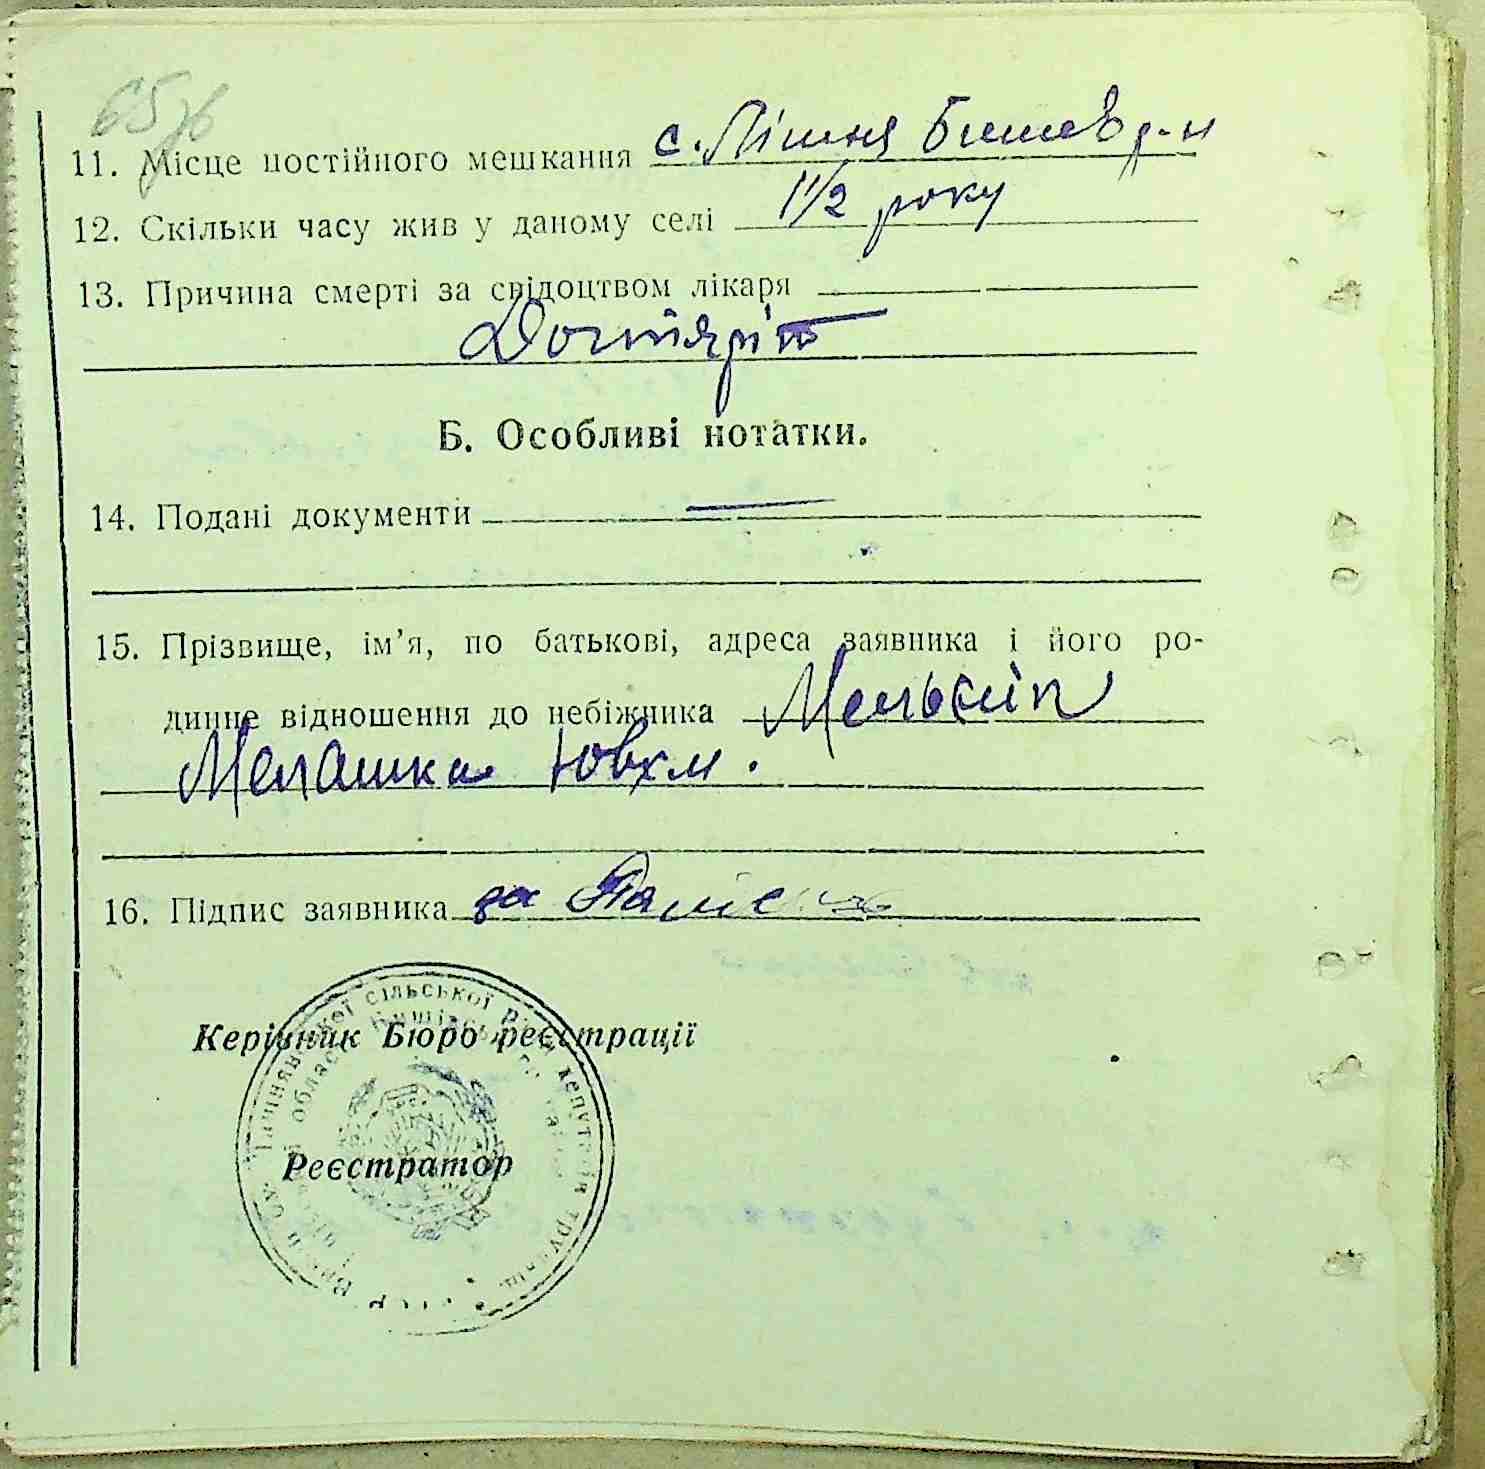 65 зв
11. Місце постійного мешкання с. Лішня Бишев р-н
12. Скільки часу жив у даному селі 1 1/2 року
13. Причина смерті за свідоцтвом лікаря
Б. Особливі нотатки.
14. Подані документи —
15. Прізвище, ім'я, по батькові, адреса заявника і його ро-
динне відношення до небіжчика
Мелашка Ювхм.
16. Підпис заявника за
сільської
Керівник Бюро реєстрації
Реєстратор